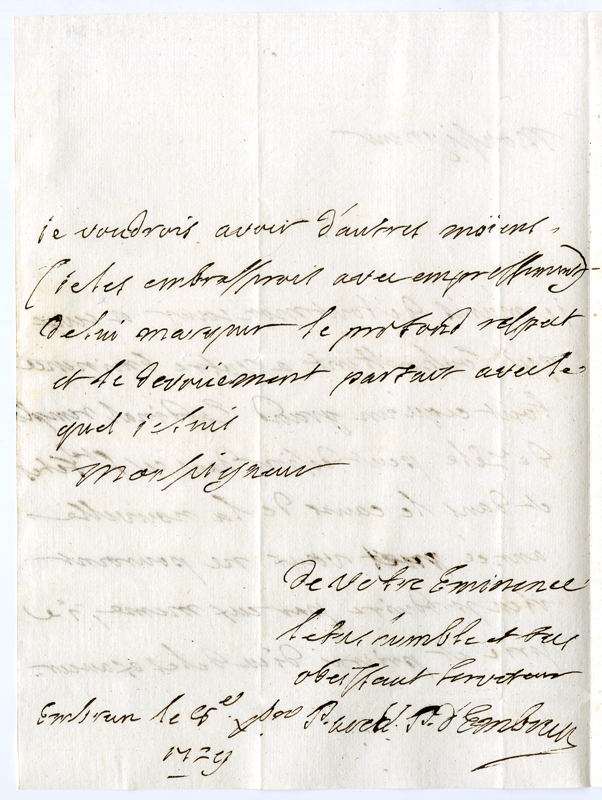 ie voudrois avoir d'autres moïens,
(ie les embrasserois avec empressement)
de lui marquer le profond respect
et le devoüement parfait avec le-
quel ie suis
Monseigneur
de votre Eminence
le tres humble et tres
obeissant serviteur
P. arch. P. d'Embrun
Embrun le
1729